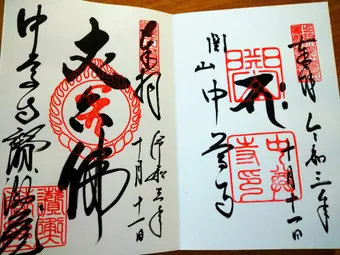 奉拝 令和三年
十月十一日
関山 中尊寺
中尊寺印
奉拝 令和三年
十月十一日
丈六佛
中尊寺讃衡蔵